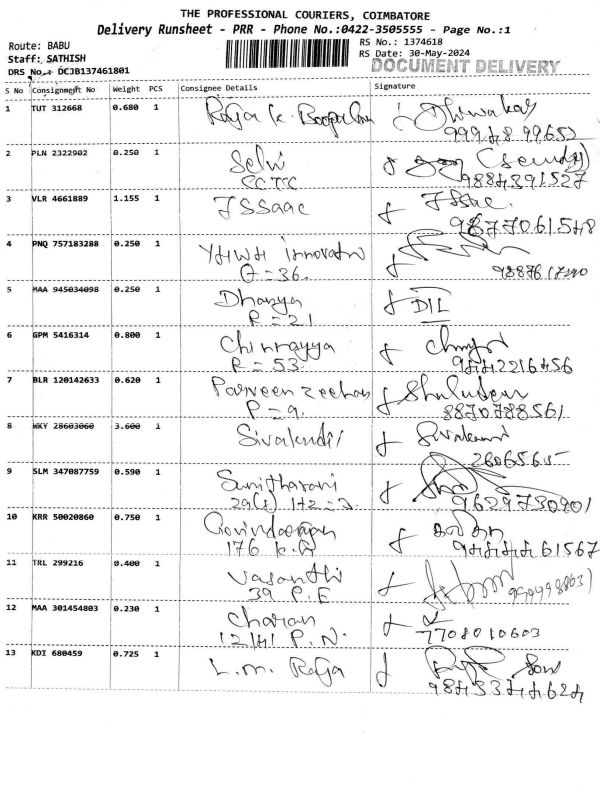 THE PROFESSIONAL COURIERS, COIMBATORE
Delivery Runsheet - PRR - Phone No.:0422-3505555 - Page No.:1
Route: BABU
RS No.: 1374618
Staff: SATHISH
RS Date: 30-May-2024
DRS No.: DCJB137461801
DOCUMENT DELIVERY
S No Consignment No Weight PCS Consignee Details Signature
1 TUT 312668 0.680 1 Raja K.
Dhiwakar
2 PLN 2322902 0.250 1 Selvi
CCTC 9884391527
3 VLR 4661889 1.155 1 ISSaac Issac.
9877061548
4 PNQ 757183288 0.250 1
5 MAA 945034098 0.250 1 Dhanya DIL
R=21
6 GPM 5416314 0.800 1 Chinnayya
R=53. 9442216456
7 BLR 120142633 0.620 1 Parveen
P=9. 8870788561
8 WKY 28603060 3.600 1
9 SLM 347087759 0.590 1 Sunitharani
9629730901
10 KRR 50020860 0.750 1
176 9444461567
11 TRL 299216 0.400 1 Vasanthi
39 P.E
12 MAA 301454803 0.230 1 Charan
12/41 P.N. 7708010603
13 KDI 680459 0.725 1 L.M. Raja
9843344624